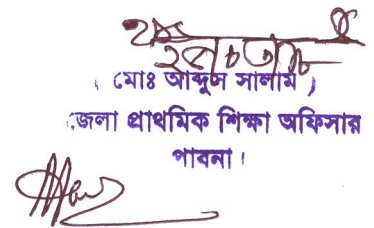 ( মোঃ আব্দুস সালাম )
জেলা প্রাথমিক শিক্ষা অফিসার
পাবনা।